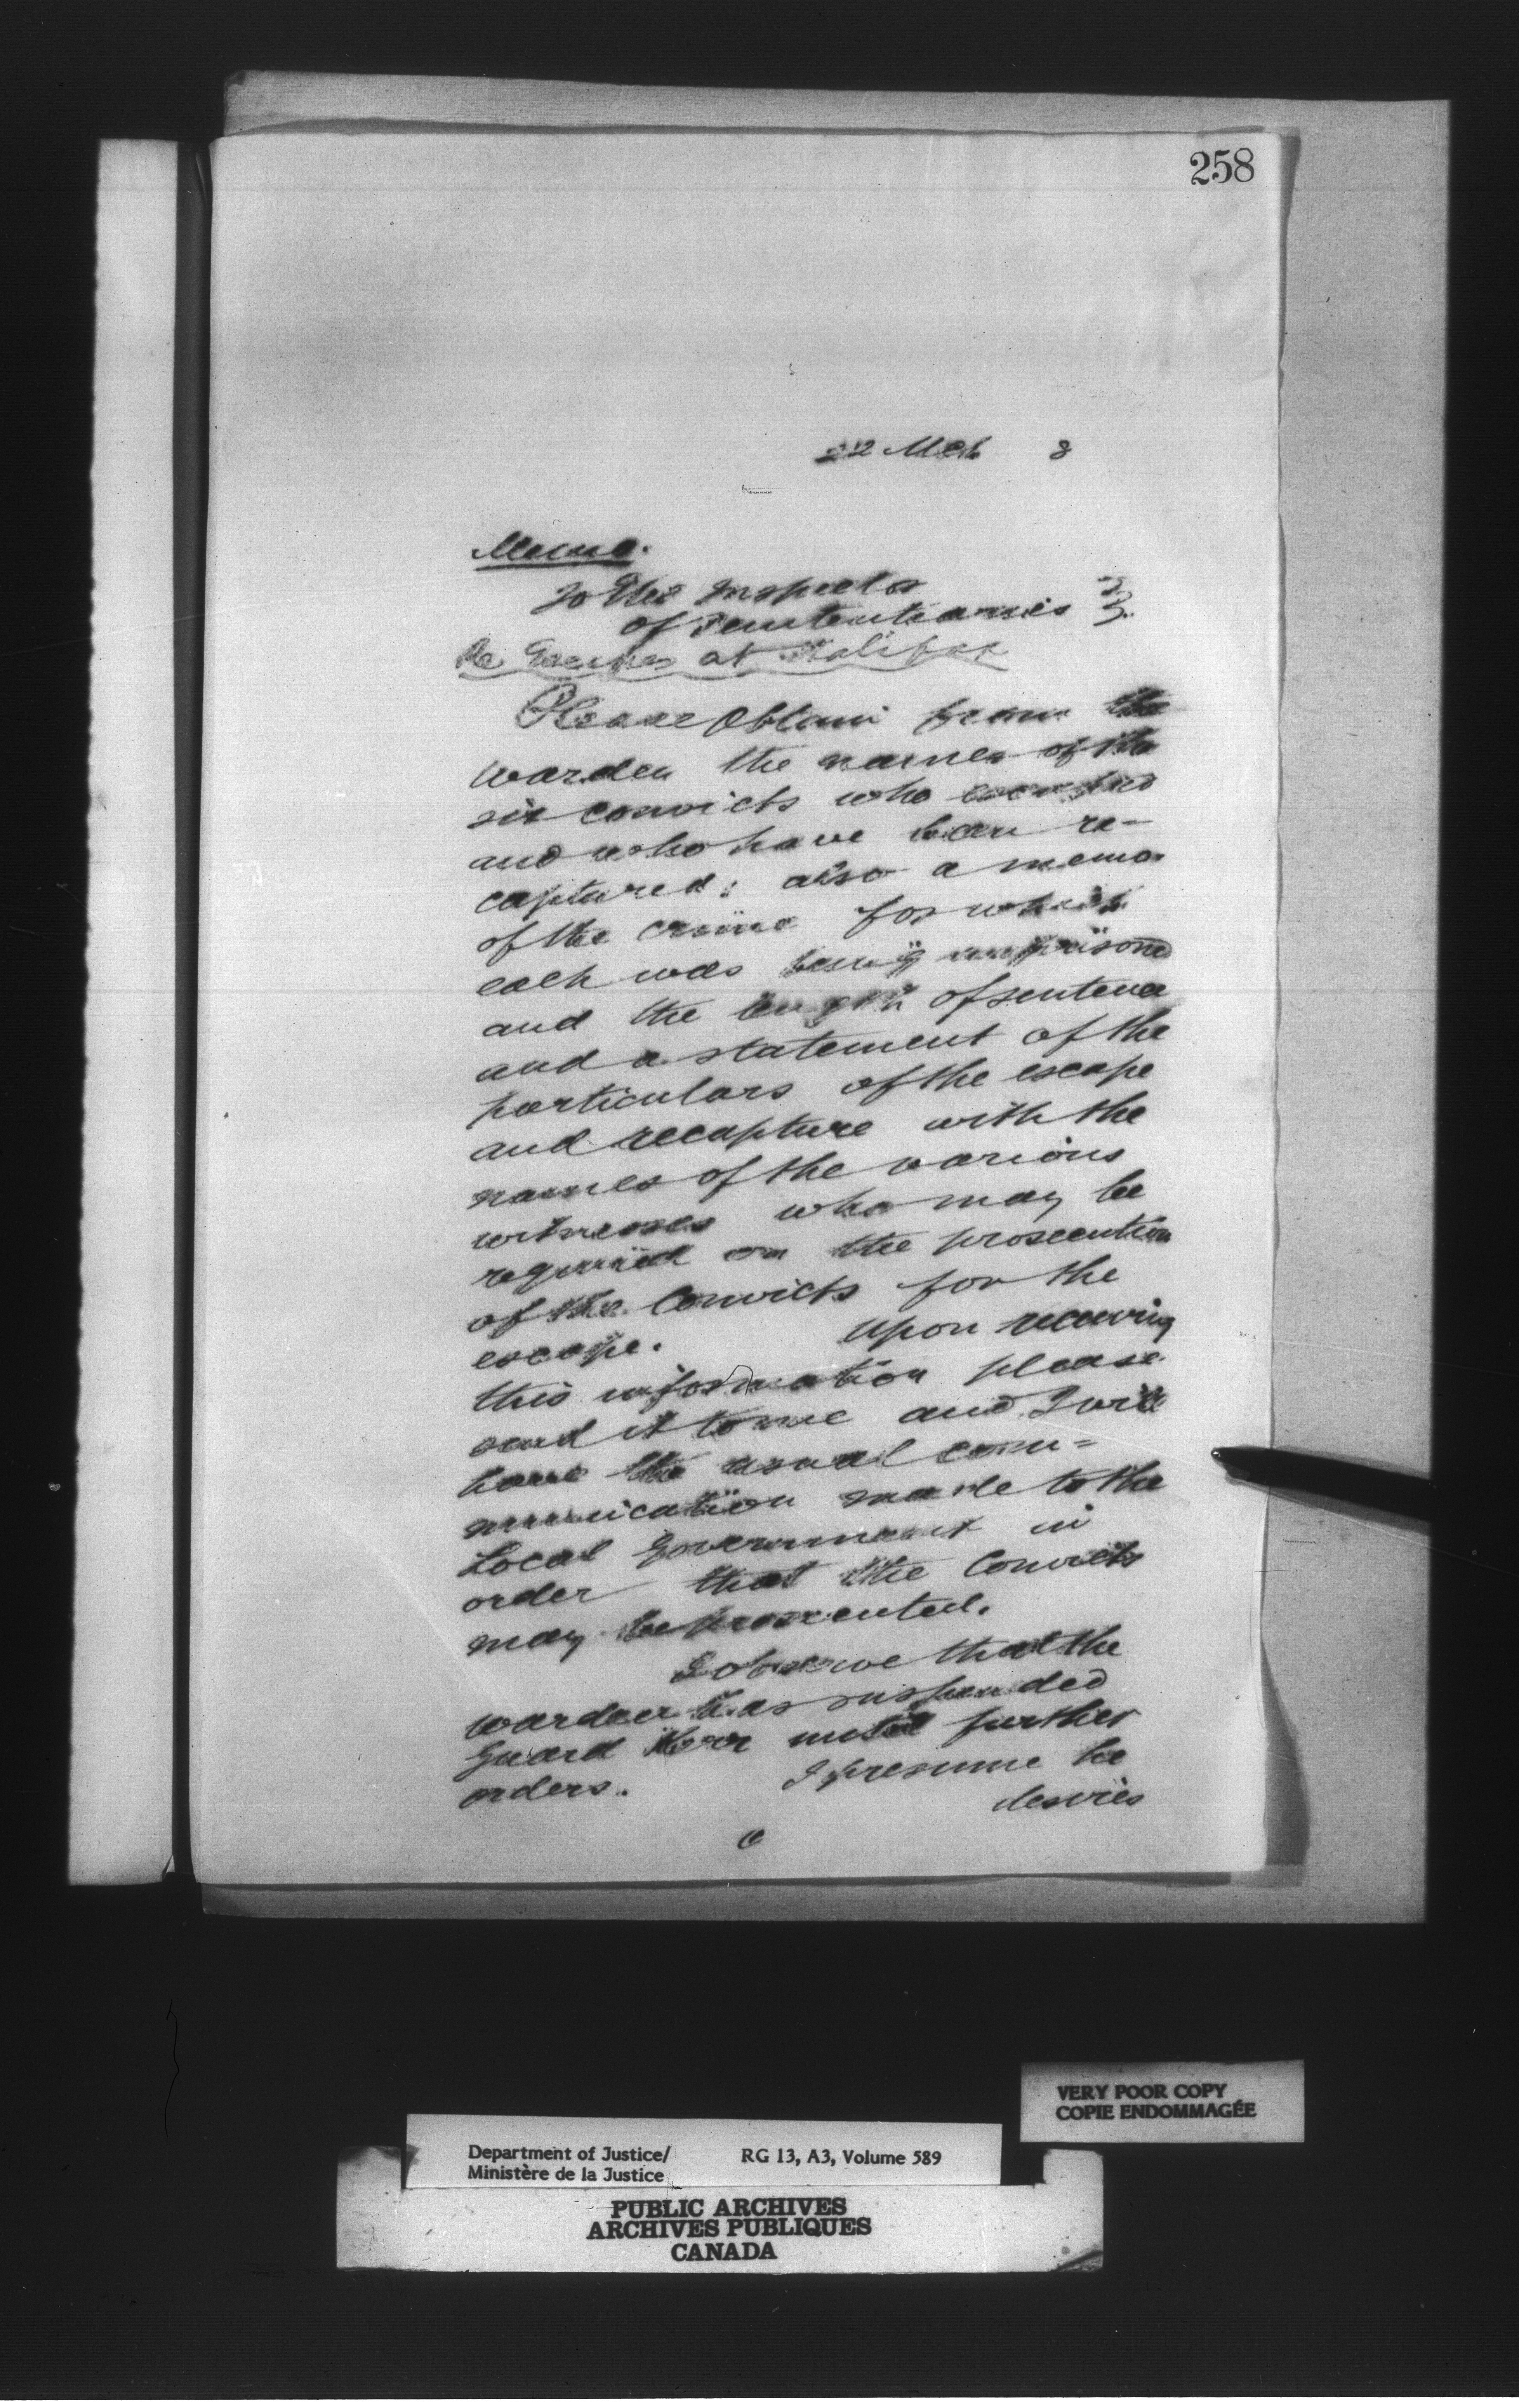 258
22 Mch 8
Memo.
To the Inspector
of Penitentiaries
Re Escapes at Halifax
Please obtain from the
warden the names of the
six convicts who escaped
and who have been re-
captured; also a memo
of the crime for which
each was being imprisoned
and the length of sentence
and a statement of the
particulars of the escape
and recapture with the
names of the various
witnesses who may be
required on the prosecution
of the Convicts for the
escape. Upon receiving
this information please
send it to me and I will
have the usual com=
munication made to the
Local Government in
order that the Convicts
may be prosecuted.
I observe that the
warden has suspended
Guard until further
orders. I presume he
desires
VERY POOR COPY
COPIE ENDOMMAGÉE
Department of Justice/ RG 13, A3, Volume 589
Ministère de la Justice
PUBLIC ARCHIVES
ARCHIVES PUBLIQUES
CANADA